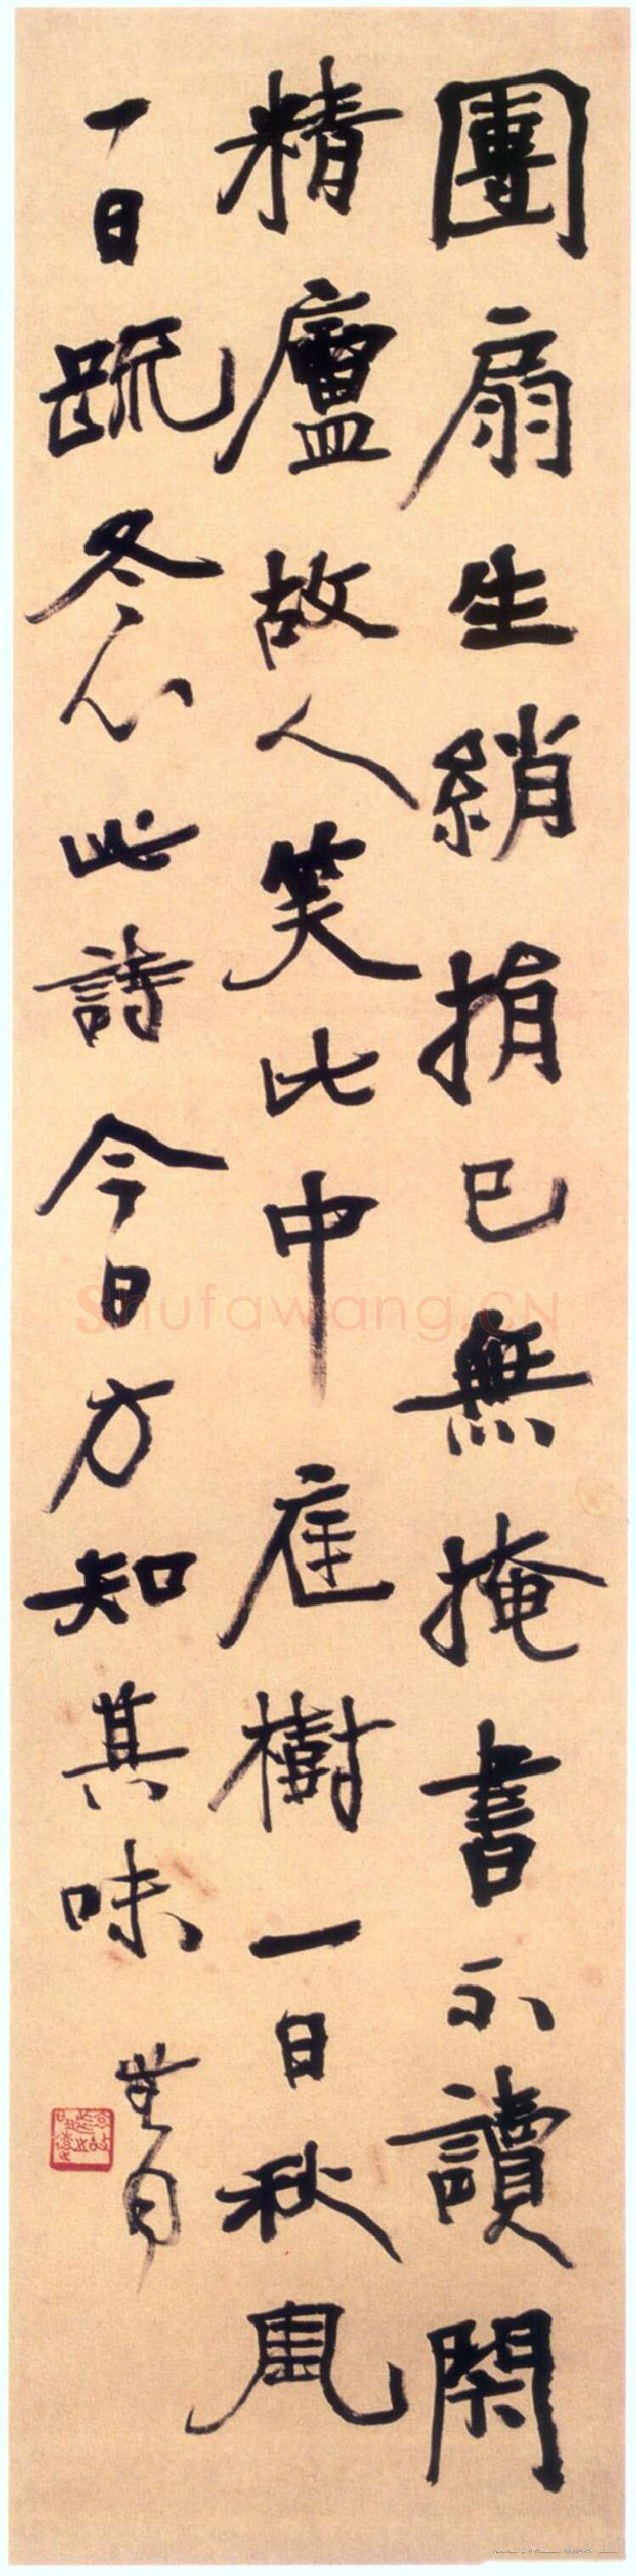 團扇生綃捐已無掩書不讀閑
精廬故人笑比中庭樹一日秋風
一日疏冬心此詩今日方知其味
Shufawang.CN